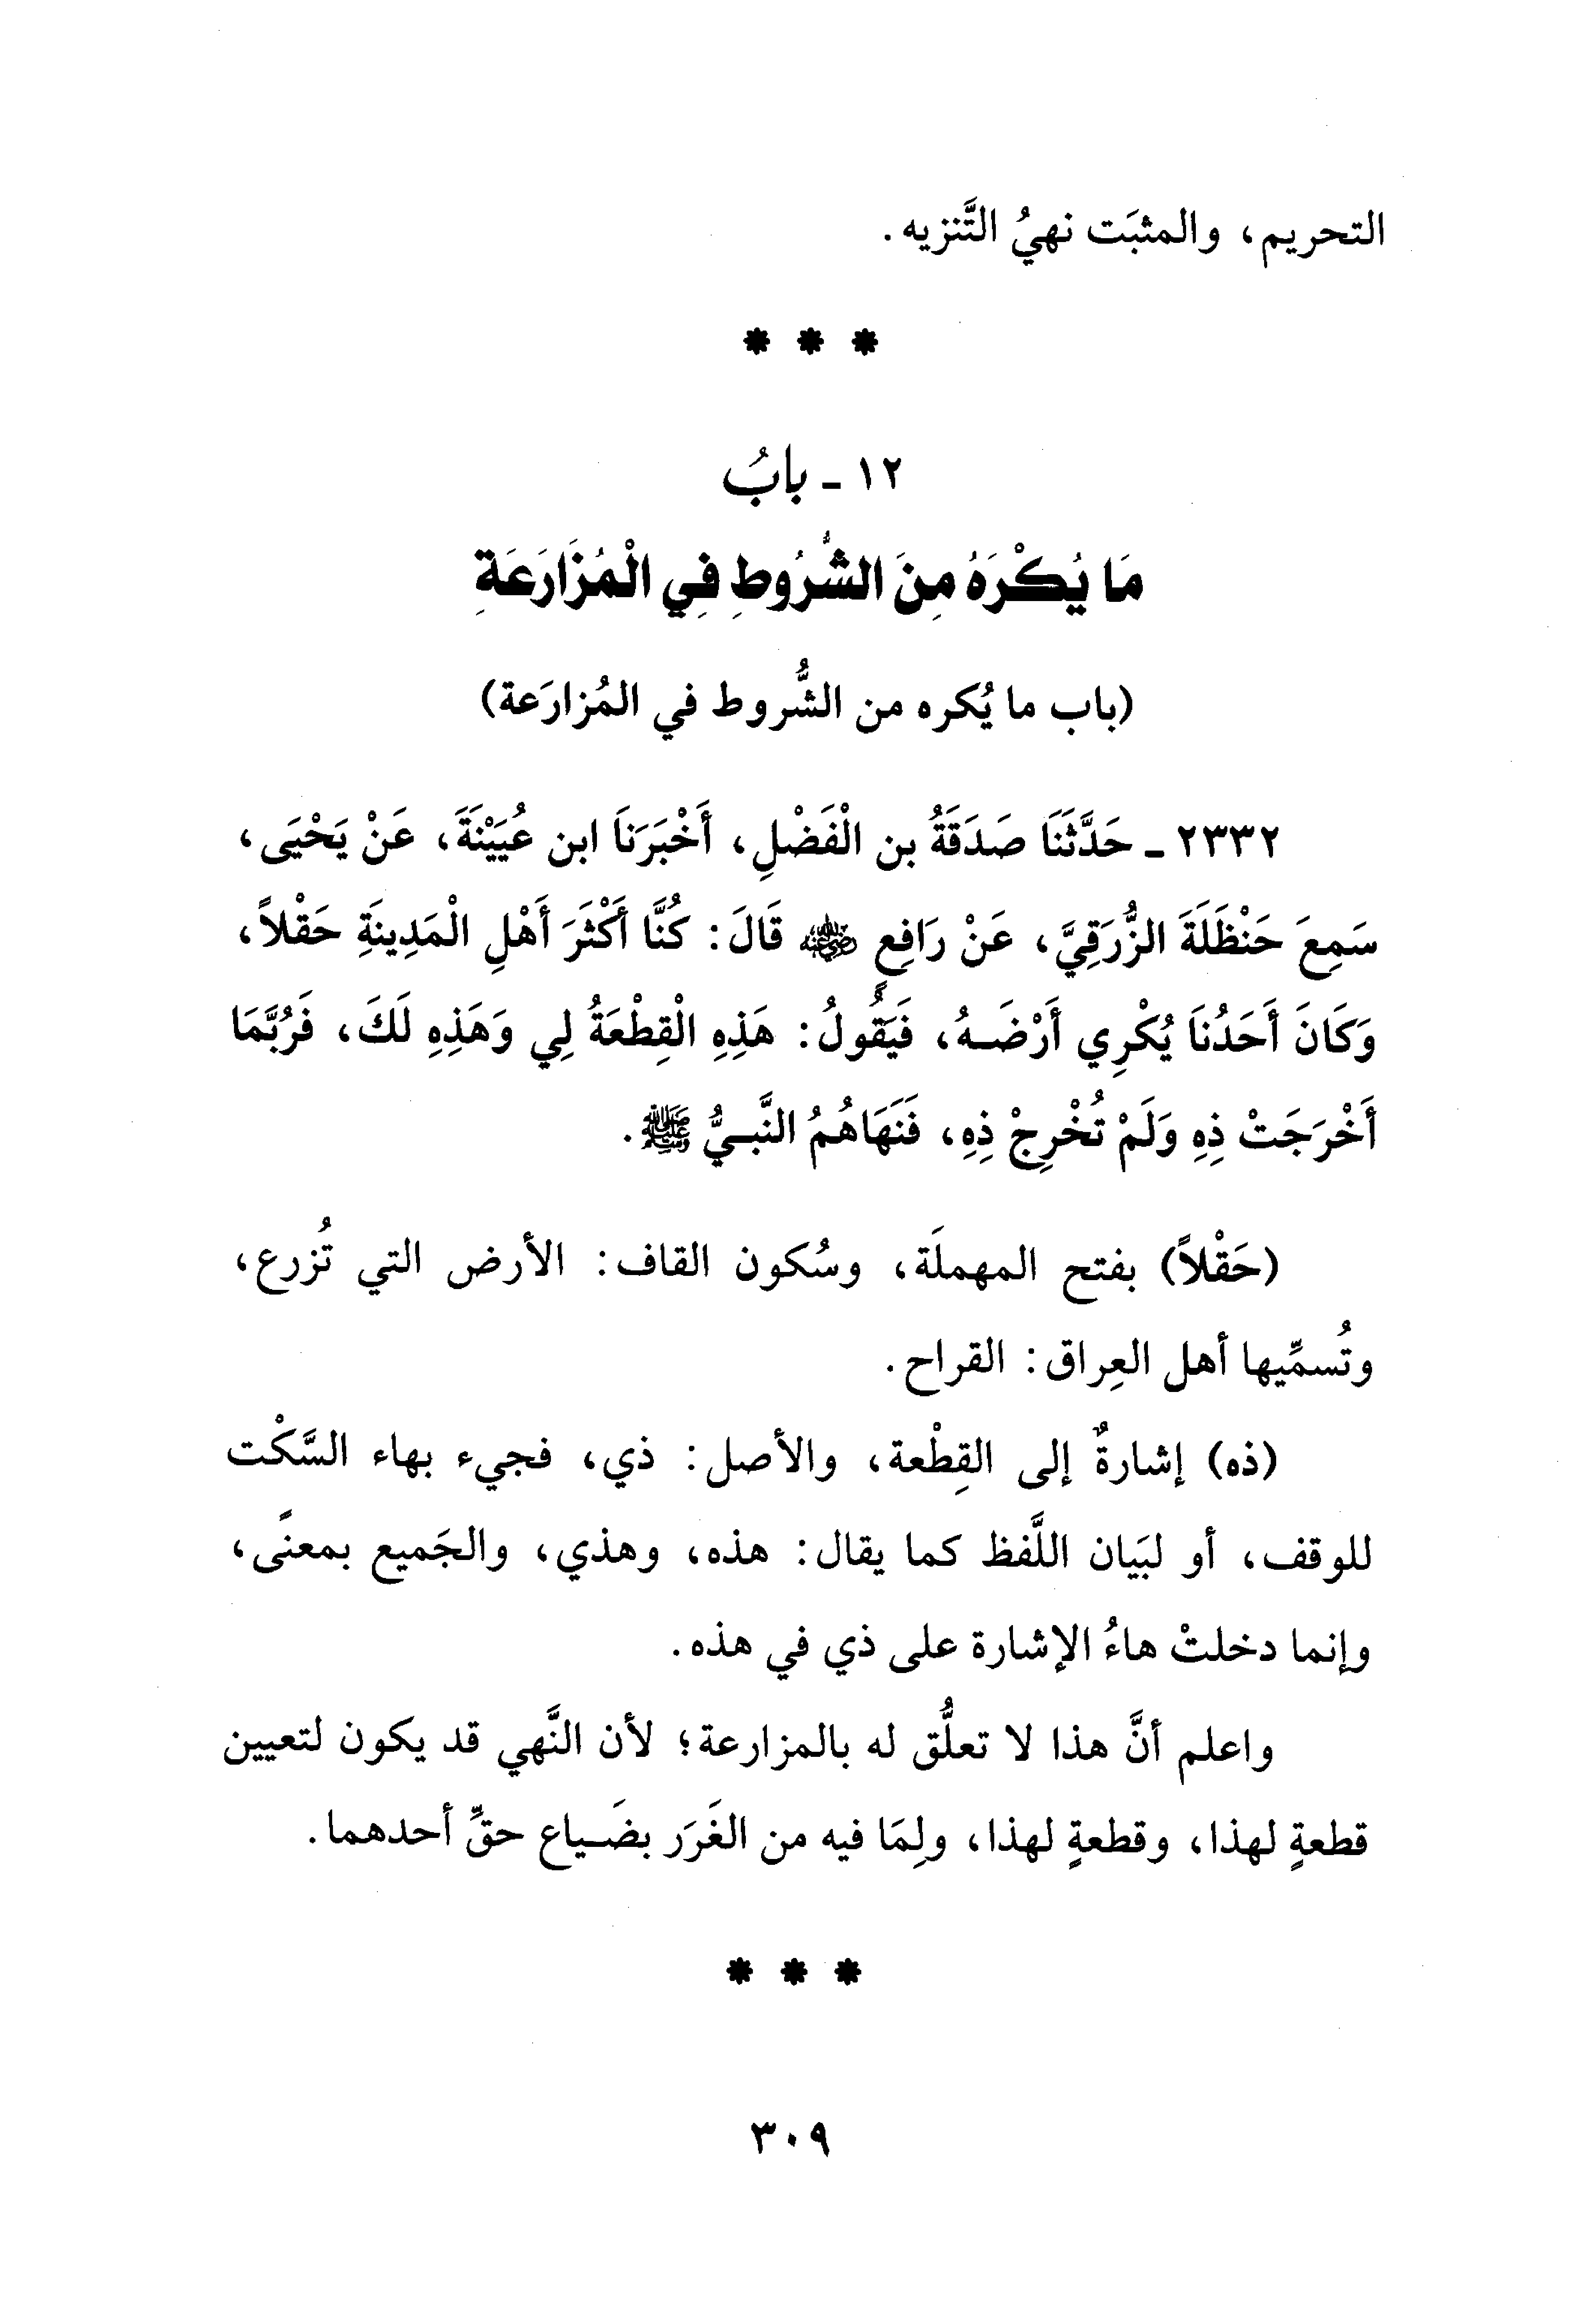 التحريم، والمثبَت نهيُ التَّنزيه.
* * *
١٢ ـ بابُ
مَا يُكْرَهُ مِنَ الشُّرُوطِ فِي الْمُزَارَعَةِ
(باب ما يُكره من الشُّروط في المُزارَعة)
٢٣٣٢ ـ حَدَّثَنَا صَدَقَةُ بن الْفَضْلِ، أَخْبَرَنَا ابن عُيَيْنَةَ، عَنْ يَحْيَى،
سَمِعَ حَنْظَلَةَ الزُّرَقِيَّ، عَنْ رَافِعٍ رضي الله عنه قَالَ: كُنَّا أَكْثَرَ أَهْلِ الْمَدِينَةِ حَقْلاً،
وَكَانَ أَحَدُنَا يُكْرِي أَرْضَـهُ، فَيَقُولُ: هَذِهِ الْقِطْعَةُ لِي وَهَذِهِ لَكَ، فَرُبَّمَا
أَخْرَجَتْ ذِهِ وَلَمْ تُخْرِجْ ذِهِ، فَنَهَاهُمُ النَّبـيُّ ﷺ.
(حَقْلاً) بفتح المهملَة، وسُكون القاف: الأرض التي تُزرع،
وتُسمِّيها أهل العِراق: القراح.
(ذه) إشارةٌ إلى القِطْعة، والأصل: ذي، فجيء بهاء السَّكْت
للوقف، أو لبَيان اللَّفظ كما يقال: هذه، وهذي، والجَميع بمعنًى،
وإنما دخلتْ هاءُ الإشارة على ذي في هذه.
واعلم أنَّ هذا لا تعلُّق له بالمزارعة؛ لأن النَّهي قد يكون لتعيين
قطعةٍ لهذا، وقطعةٍ لهذا، ولِمَا فيه من الغَرَر بضَـياع حقِّ أحدهما.
* * *
٣٠٩